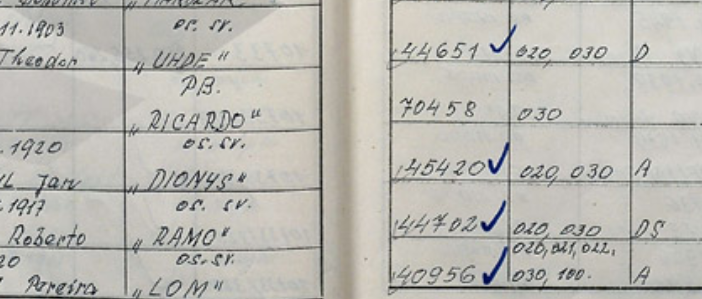 11.1903 os. sv. 44651 020, 030 D
Theodor „UHDE"
PB. 70458 030
„RICARDO"
.1920 os. sv. 45420 020, 030 A
Jan „DIONYS"
.1917 os. sv. 44702 020, 030 DS
Roberto „RAMO" 020, 021, 022,
20 os. sv. 40956 030, 100. A
Pereira „LOM"